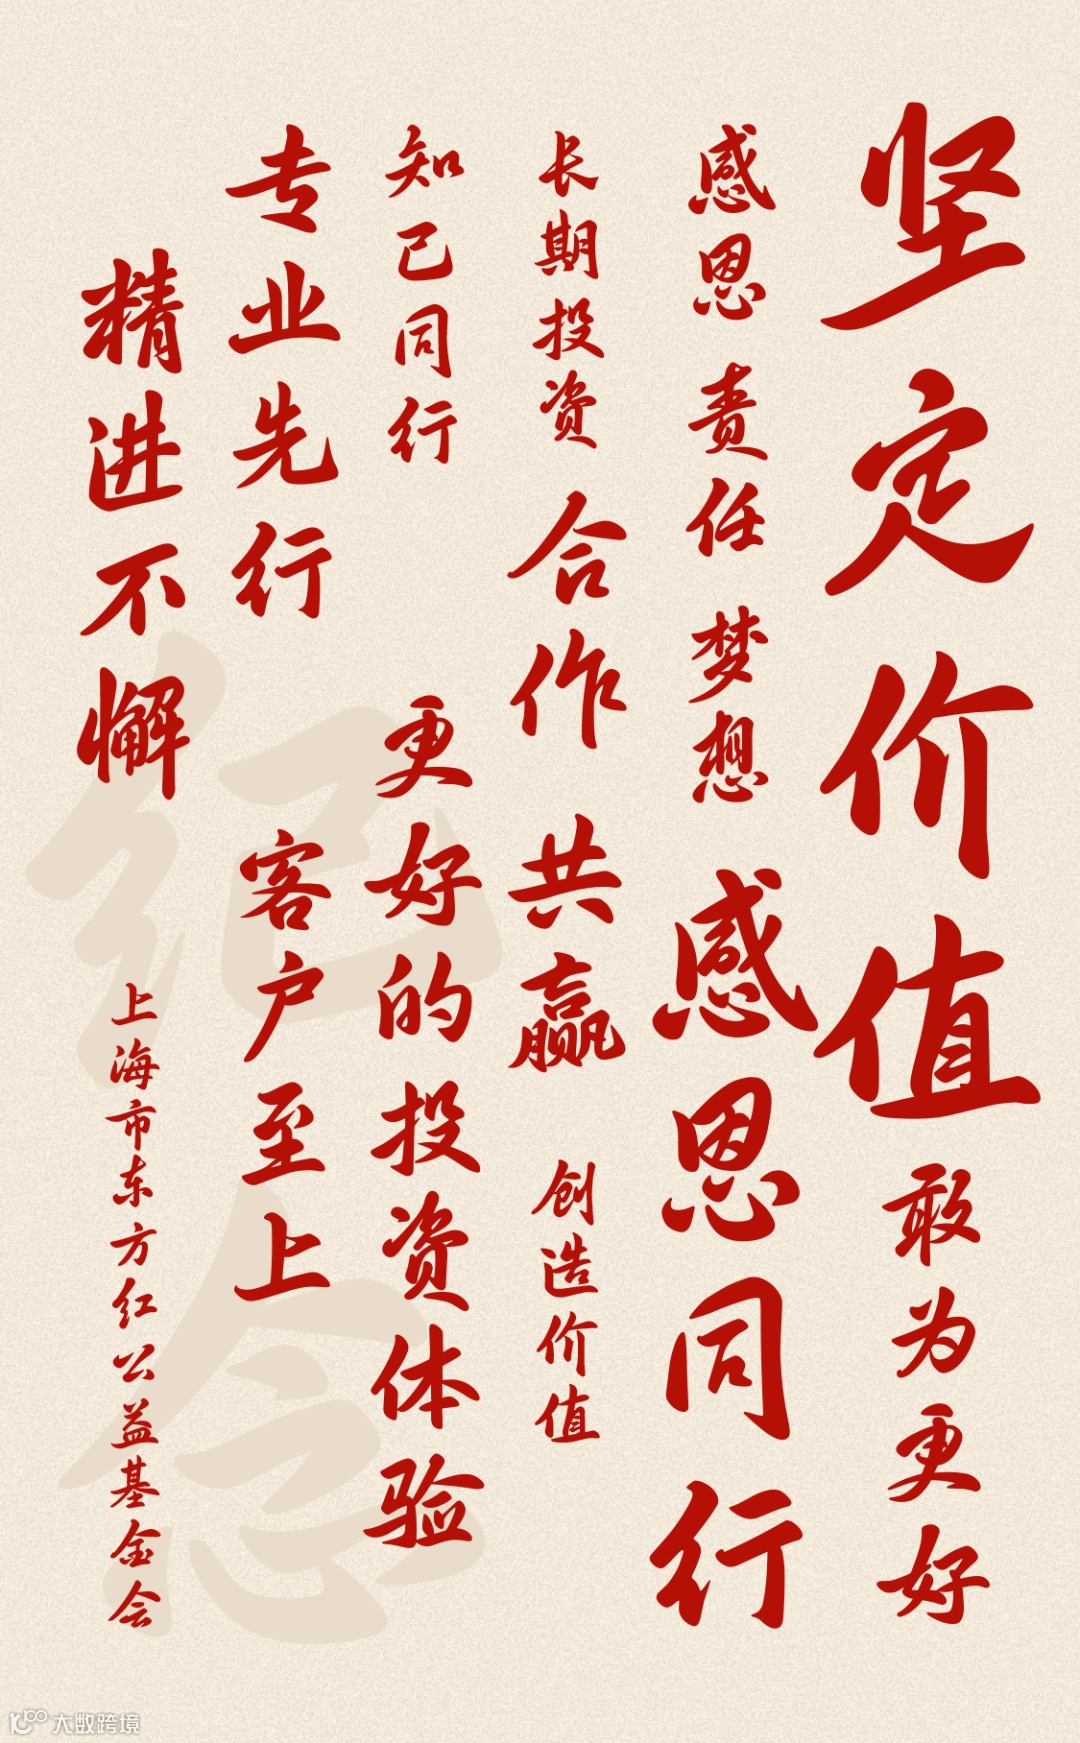 坚定价值 敢为更好
感恩 责任 梦想 感恩同行
长期投资 合作 共赢 创造价值
知己同行 更好的投资体验
专业先行 客户至上
精进不懈 上海市东方红公益基金会
纪念
大数跨境